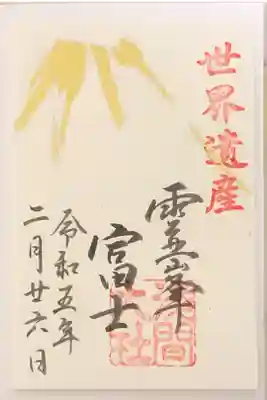 世界遺産
霊峯
富士
浅間大社
令和五年
二月廿六日